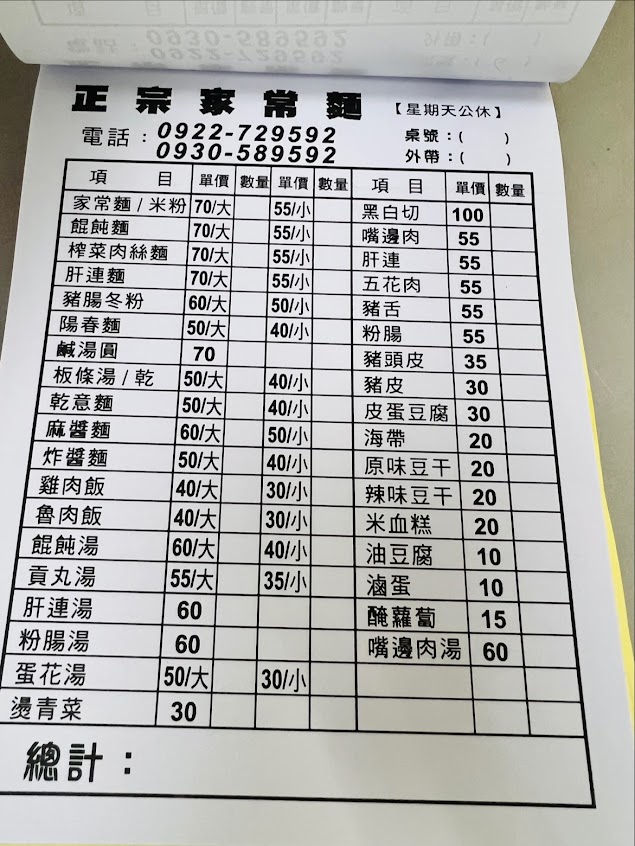 0930-589592 外帶:(
0922-729592
正宗家常麵 【星期天公休】
電話：0922-729592 桌號：( )
0930-589592 外帶：( )
項 目 單價 數量 單價 數量 項 目 單價 數量
家常麵/米粉 70/大 55/小 黑白切 100
餛飩麵 70/大 55/小 嘴邊肉 55
榨菜肉絲麵 70/大 55/小 肝連 55
肝連麵 70/大 55/小 五花肉 55
豬腸冬粉 60/大 50/小 豬舌 55
陽春麵 50/大 40/小 粉腸 55
鹹湯圓 70 豬頭皮 35
板條湯/乾 50/大 40/小 豬皮 30
乾意麵 50/大 40/小 皮蛋豆腐 30
麻醬麵 60/大 50/小 海帶 20
炸醬麵 50/大 40/小 原味豆干 20
雞肉飯 40/大 30/小 辣味豆干 20
魯肉飯 40/大 30/小 米血糕 20
餛飩湯 60/大 40/小 油豆腐 10
貢丸湯 55/大 35/小 滷蛋 10
肝連湯 60 醃蘿蔔 15
粉腸湯 60 嘴邊肉湯 60
蛋花湯 50/大 30/小
燙青菜 30
總計：